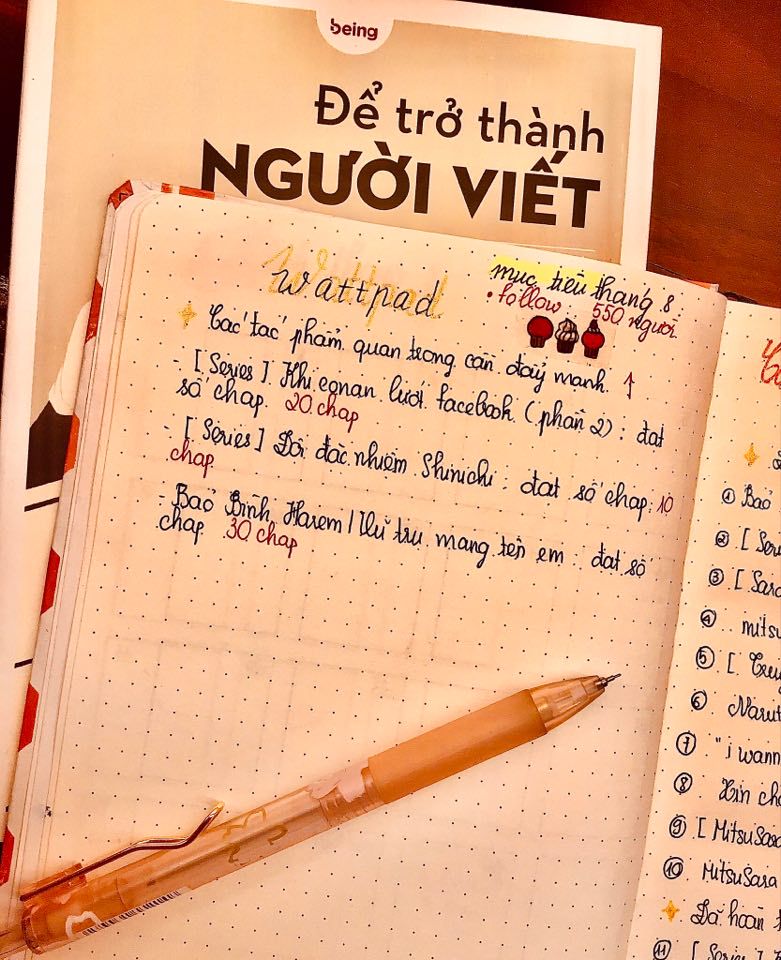 being
Để trở thành
NGƯỜI VIẾT
wattpad
mục tiêu tháng 8
• follow 550 người
Các tác phẩm quan trọng cần đẩy mạnh ↑
- [Series] Khi conan lướt facebook (phần 2) : đạt
số chap. 20 chap
- [Series] Đội đặc nhiệm Shinichi : đạt số chap: 10
chap
- Bảo Bình Harem / Vũ trụ mang tên em : đạt số
chap 30 chap
① Bảo
② [Seri
③ [Sara
④ mitsu
⑤ [
⑥ Narut
⑦ "i wann
⑧ Xin ch
⑨ [MitsuSara
⑩ MitsuSara
Đã hoàn t
⑪ [Series]